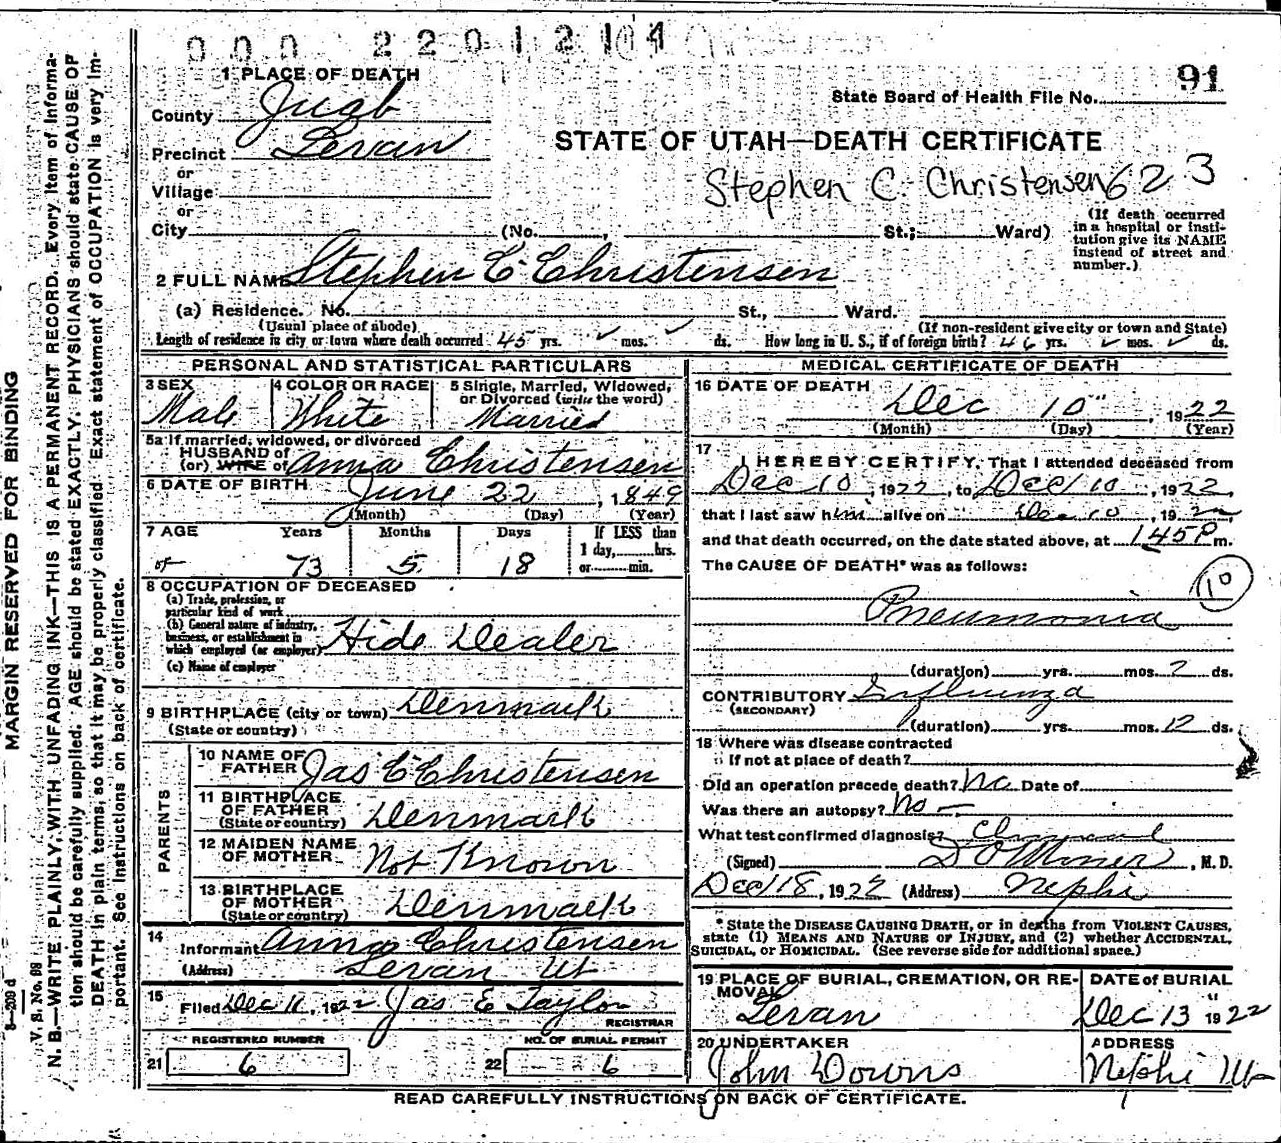 000 2201214
91
1 PLACE OF DEATH
State Board of Health File No.
County Juab
STATE OF UTAH—DEATH CERTIFICATE
Precinct Levan
or
Village
Stephen C. Christensen 623
or
City (No. , St.; Ward)
(If death occurred in a hospital or institution give its NAME instead of street and number.)
2 FULL NAME Stephen C Christensen
(a) Residence. No. St., Ward.
(Usual place of abode) (If non-resident give city or town and State)
Length of residence in city or town where death occurred 45 yrs. mos. ds. How long in U. S., if of foreign birth? 46 yrs. mos. ds.
PERSONAL AND STATISTICAL PARTICULARS
3 SEX Male
4 COLOR OR RACE White
5 Single, Married, Widowed, or Divorced (write the word) Married
5a If married, widowed, or divorced
HUSBAND of
(or) WIFE of Anna Christensen
6 DATE OF BIRTH June 22, 1849
(Month) (Day) (Year)
7 AGE Years Months Days If LESS than
1 day, hrs.
or min.
73 5 18
8 OCCUPATION OF DECEASED
(a) Trade, profession, or particular kind of work
(b) General nature of industry, business, or establishment in which employed (or employer) Hide Dealer
(c) Name of employer
9 BIRTHPLACE (city or town) Denmark
(State or country)
PARENTS
10 NAME OF FATHER Jas C Christensen
11 BIRTHPLACE OF FATHER (State or country) Denmark
12 MAIDEN NAME OF MOTHER Not Known
13 BIRTHPLACE OF MOTHER (State or country) Denmark
14 Informant Anna Christensen
(Address) Levan Ut
15 Filed Dec 11, 1922 Jas E Taylor
REGISTRAR
REGISTERED NUMBER NO. OF BURIAL PERMIT
21 6 22 6
MEDICAL CERTIFICATE OF DEATH
16 DATE OF DEATH Dec 10", 1922
(Month) (Day) (Year)
17 I HEREBY CERTIFY, That I attended deceased from
Dec 10, 1922, to Dec 10, 1922,
that I last saw him alive on Dec 10, 1922,
and that death occurred, on the date stated above, at 145 P m.
The CAUSE OF DEATH* was as follows:
10
Pneumonia
(duration) yrs. mos. 2 ds.
CONTRIBUTORY Influenza
(SECONDARY)
(duration) yrs. mos. 12 ds.
18 Where was disease contracted
If not at place of death?
Did an operation precede death? No Date of
Was there an autopsy? No
What test confirmed diagnosis?
(Signed) Miner, M. D.
Dec 18, 1922 (Address) Nephi
* State the DISEASE CAUSING DEATH, or in deaths from VIOLENT CAUSES,
state (1) MEANS AND NATURE OF INJURY, and (2) whether ACCIDENTAL,
SUICIDAL, or HOMICIDAL. (See reverse side for additional space.)
19 PLACE OF BURIAL, CREMATION, OR REMOVAL Levan
DATE of BURIAL Dec 13 1922
20 UNDERTAKER John Downs
ADDRESS Nephi Ut
READ CAREFULLY INSTRUCTIONS ON BACK OF CERTIFICATE.
MARGIN RESERVED FOR BINDING
S—209 d
V. S. No. 98
N. B.—WRITE PLAINLY, WITH UNFADING INK—THIS IS A PERMANENT RECORD. Every item of information should be carefully supplied. AGE should be stated EXACTLY. PHYSICIANS should state CAUSE OF DEATH in plain terms, so that it may be properly classified. Exact statement of OCCUPATION is very important. See instructions on back of certificate.